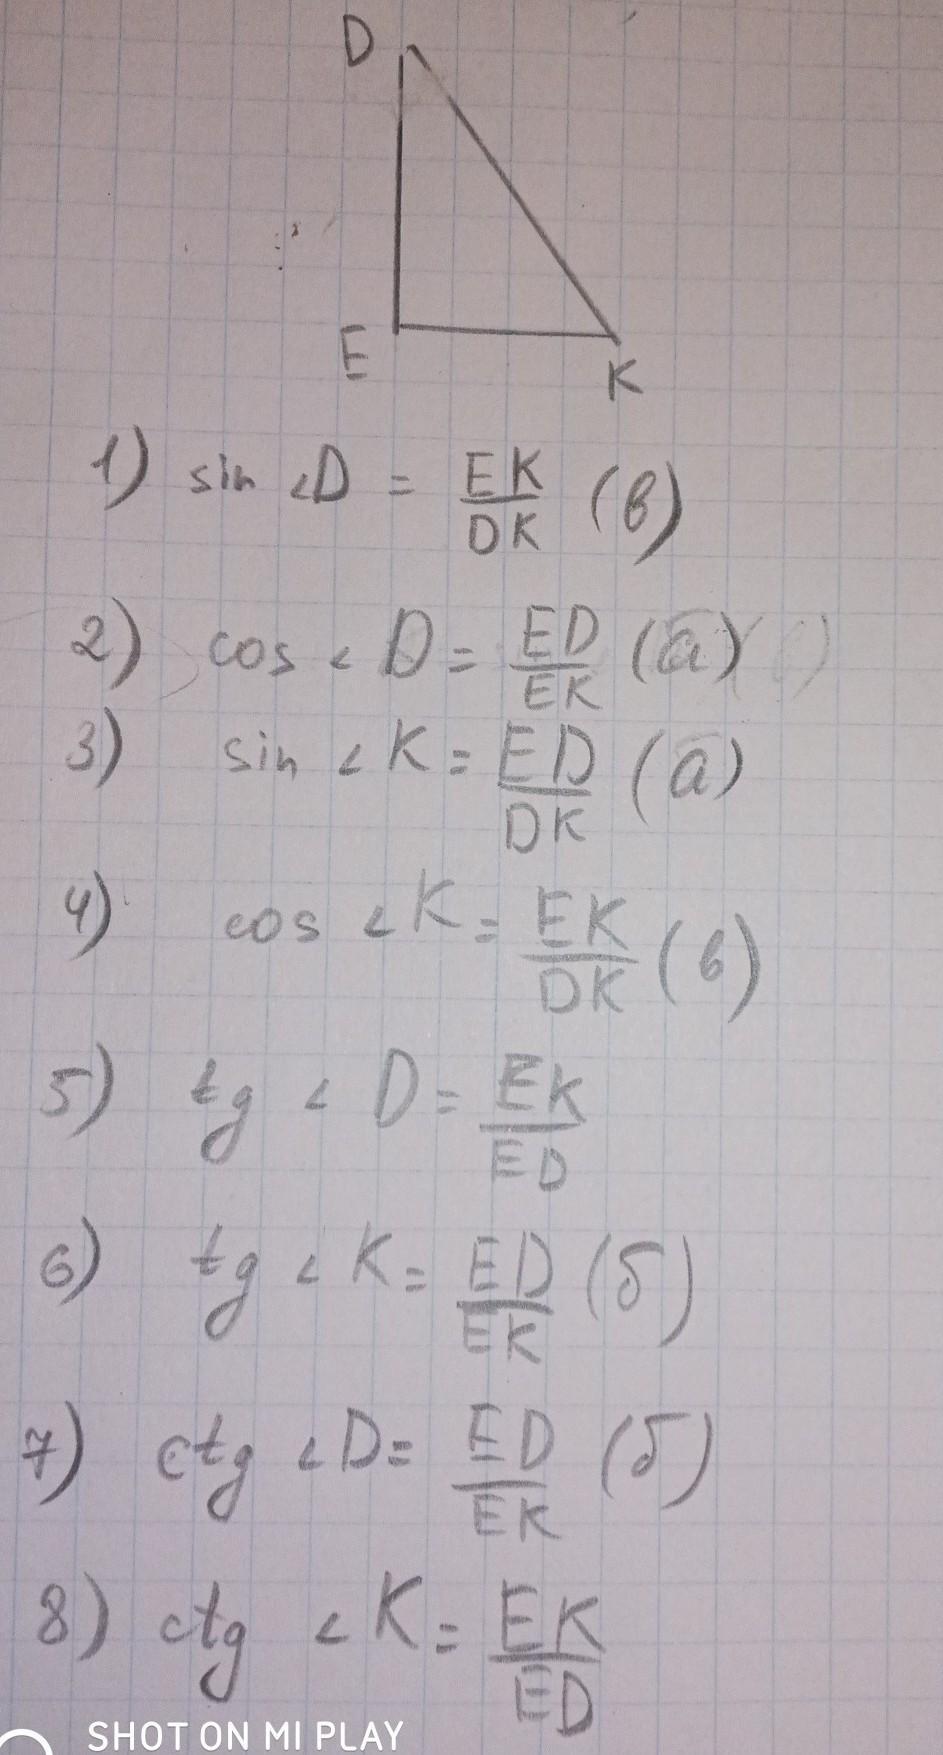 D
E
K
1) sin ∠D = EK/DK (в)
2) cos ∠D = ED/EK (а)
3) sin ∠K = ED/DK (а)
4) cos ∠K = EK/DK (в)
5) tg ∠D = EK/ED
6) tg ∠K = ED/EK (б)
7) ctg ∠D = ED/EK (б)
8) ctg ∠K = EK/ED
SHOT ON MI PLAY